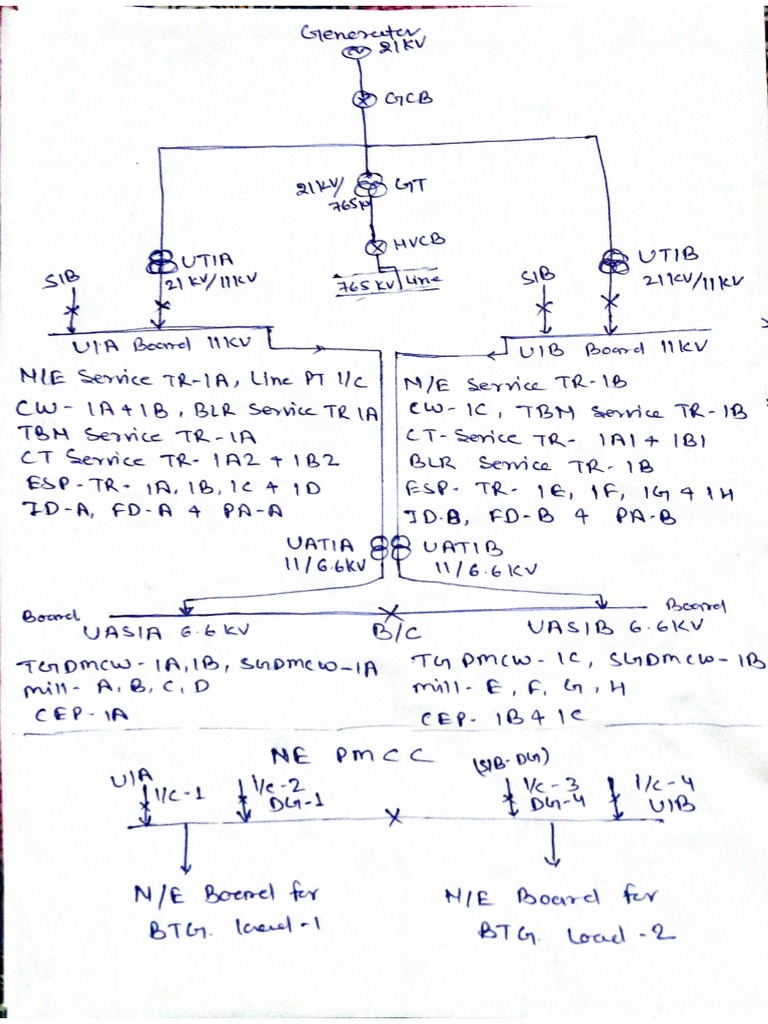 Generator
21KV
GCB
21KV/
765K
GT
HVCB
765 KV Line
UTIA
21 KV/11KV
UTIB
21KV/11KV
SIB
SIB
UIA Board 11KV
UIB Board 11KV
N/E Service TR-1A, Line PT I/C
CW- 1A + 1B, BLR Service TR 1A
TBM Service TR-1A
CT Service TR- 1A2 + 1B2
ESP-TR- 1A, 1B, 1C & 1D
ID-A, FD-A & PA-A
N/E Service TR-1B
CW-1C, TBM Service TR-1B
CT-Service TR- 1A1 + 1B1
BLR Service TR-1B
ESP- TR- 1E, 1F, 1G & 1H
ID.B, FD-B & PA-B
UATIA
11/6.6KV
UATIB
11/6.6KV
Board
UASIA 6.6 KV
B/C
Board
UASIB 6.6KV
TGDMCW-1A,1B, SGDMCW-1A
Mill-A, B, C, D
CEP-1A
TG DMCW- 1C, SGDMCW-1B
Mill- E, F, G, H
CEP- 1B & 1C
NE PMCC
UIA
I/C-1
I/C-2
DG-1
(SIB-DG)
I/C-3
DG-4
I/C-4
UIB
N/E Board for
BTG. Load-1
N/E Board for
BTG. Load-2